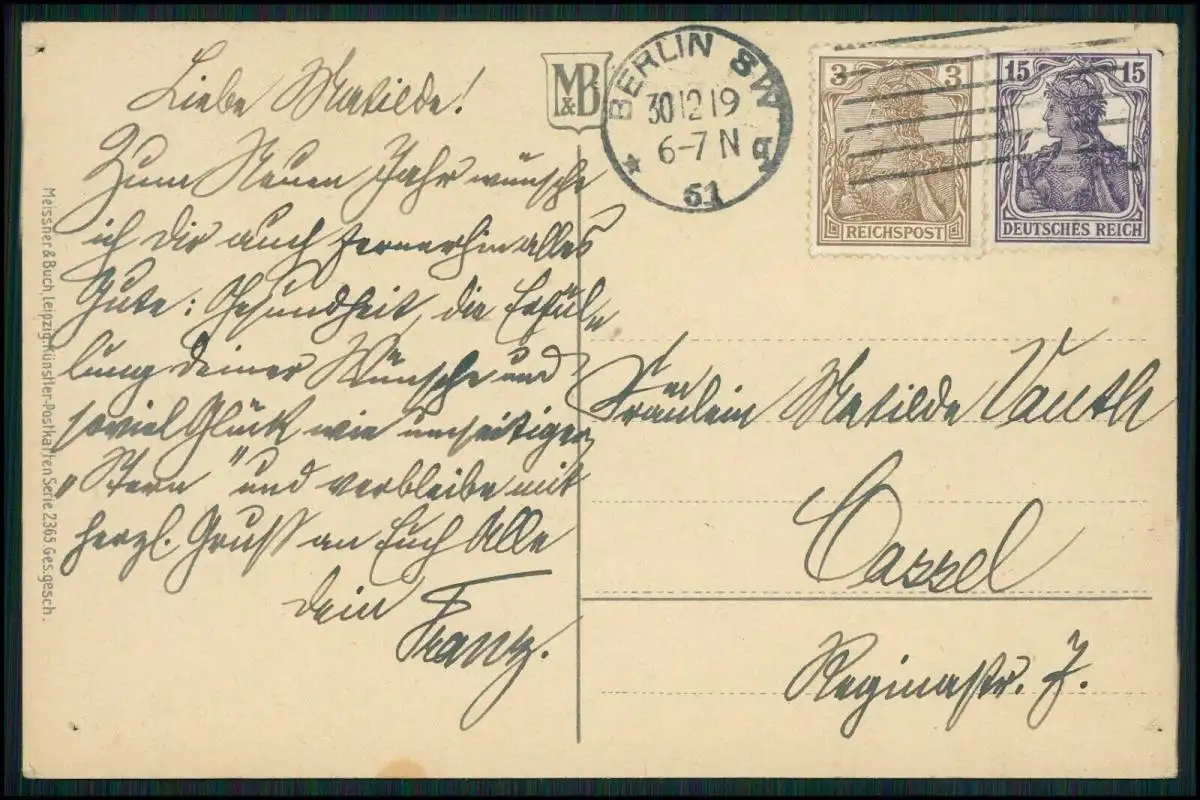 Liebe Matilde!
Zum Neuen Jahr wünsche
ich Dir auch fernerhin alles
Gute: Gesundheit, die Erfül-
lung deiner Wünsche und
soviel Glück wie umseitiger
„Stern" und verbleibe mit
herzl. Gruss an Euch Alle
dein
Frantz.
Meissner & Buch, Leipzig. Künstler-Postkarten Serie 2365 Ges. gesch.
M&B
BERLIN SW
30 12 19
6-7 N
* 61 q
3 3
REICHSPOST
15 15
DEUTSCHES REICH
Fräulein Matilde Vauth
Cassel
Reginastr. 7.